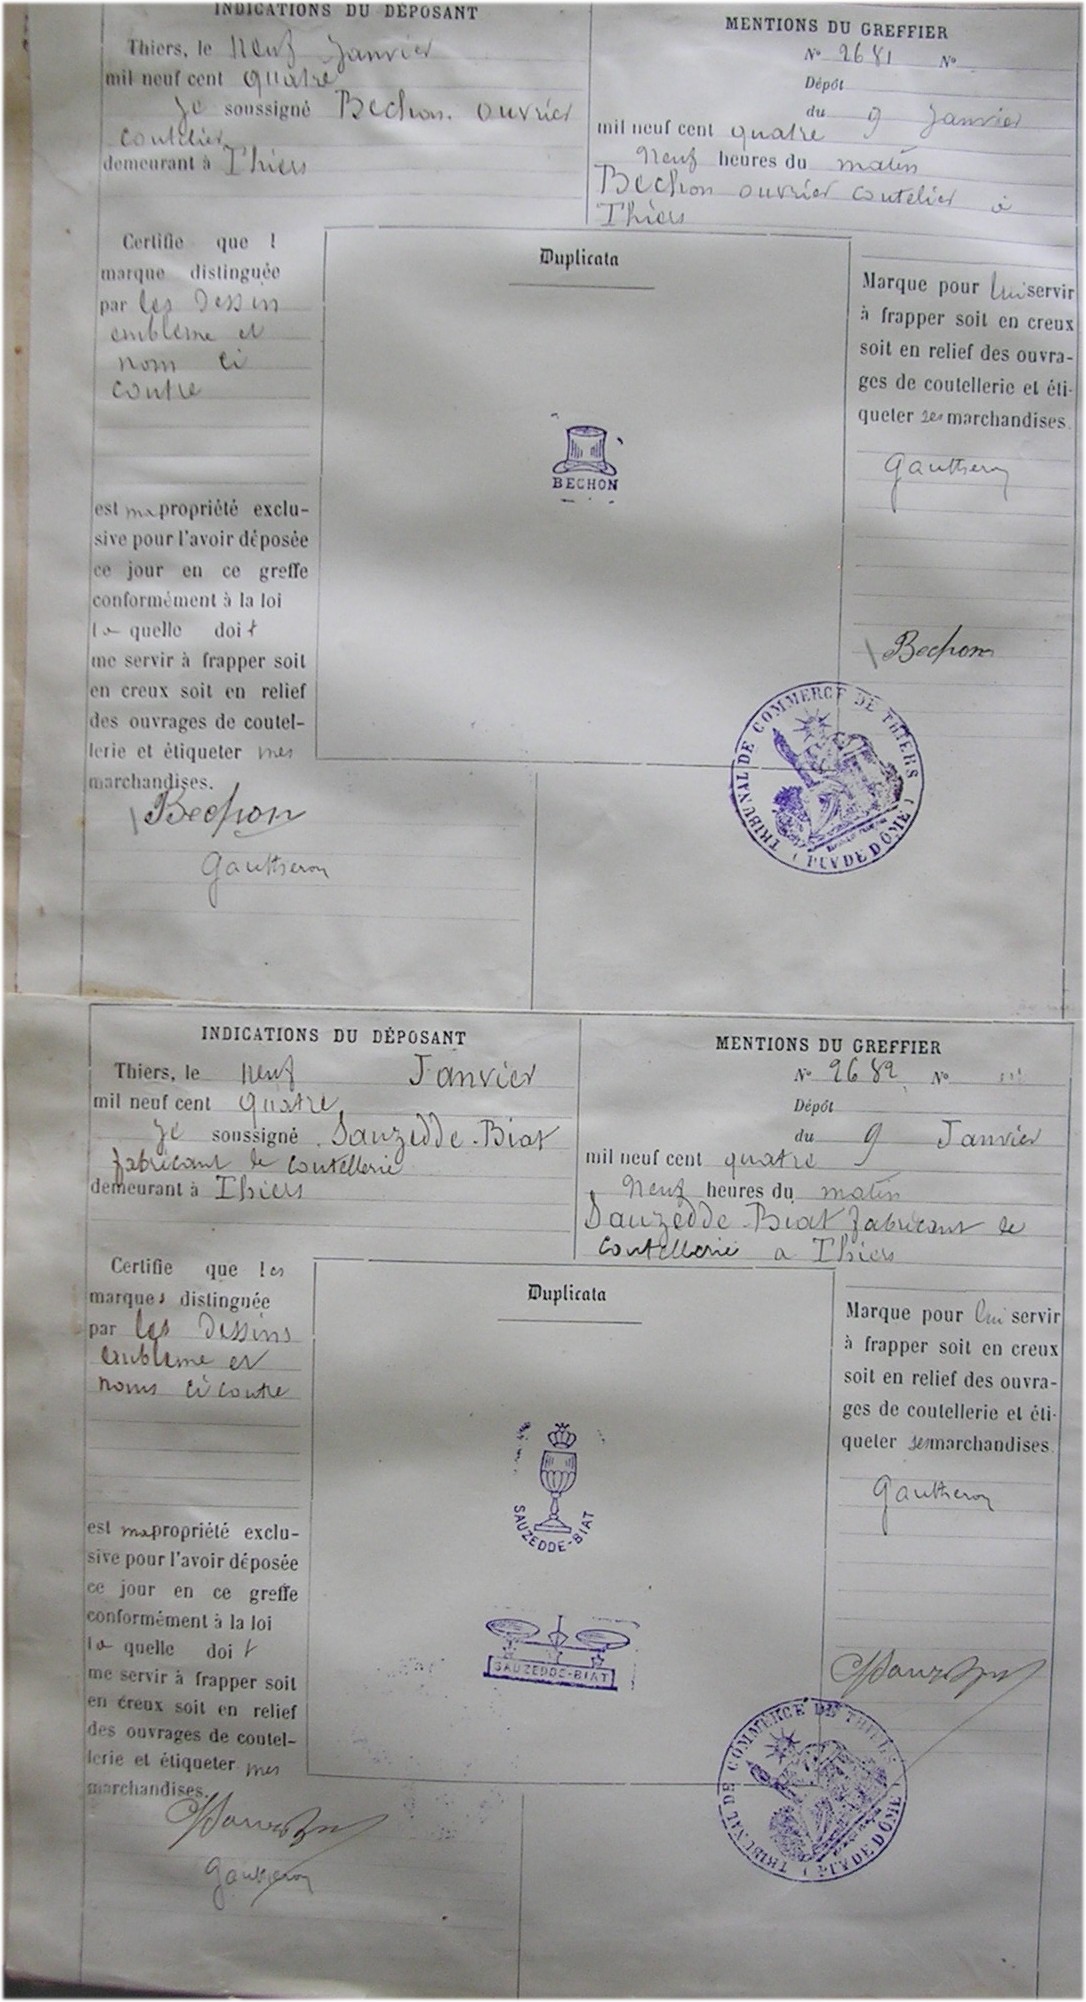 INDICATIONS DU DÉPOSANT
Thiers, le neuf Janvier
mil neuf cent quatre
Je soussigné Bechon ouvrier
coutelier
demeurant à Thiers
MENTIONS DU GREFFIER
No 2681 No
Dépôt
du 9 Janvier
mil neuf cent quatre
Neuf heures du matin
Bechon ouvrier coutelier à
Thiers
Certifie que l
marque distinguée
par les Dessin
emblème et
nom ci
contre
est ma propriété exclu-
sive pour l'avoir déposée
ce jour en ce greffe
conformément à la loi
la quelle doit
me servir à frapper soit
en creux soit en relief
des ouvrages de coutel-
lerie et étiqueter mes
marchandises.
Bechon
Gautheron
Duplicata
BECHON
Marque pour lui servir
à frapper soit en creux
soit en relief des ouvra-
ges de coutellerie et éti-
queter ses marchandises.
Gautheron
Bechon
TRIBUNAL DE COMMERCE DE THIERS
(PUY DE DÔME)
INDICATIONS DU DÉPOSANT
Thiers, le neuf Janvier
mil neuf cent quatre
Je soussigné Sauzedde-Biat
fabricant de coutellerie
demeurant à Thiers
MENTIONS DU GREFFIER
No 2682 No
Dépôt
du 9 Janvier
mil neuf cent quatre
Neuf heures du matin
Sauzedde-Biat fabricant de
coutellerie a Thiers
Certifie que les
marques distinguée
par les Dessins
emblème et
noms ci contre
est ma propriété exclu-
sive pour l'avoir déposée
ce jour en ce greffe
conformément à la loi
la quelle doit
me servir à frapper soit
en creux soit en relief
des ouvrages de coutel-
lerie et étiqueter mes
marchandises.
Gautheron
Duplicata
SAUZEDDE-BIAT
SAUZEDDE-BIAT
Marque pour lui servir
à frapper soit en creux
soit en relief des ouvra-
ges de coutellerie et éti-
queter ses marchandises.
Gautheron
TRIBUNAL DE COMMERCE DE THIERS
(PUY DE DÔME)